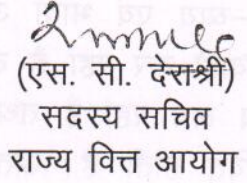 (एस. सी. देराश्री)
सदस्य सचिव
राज्य वित्त आयोग